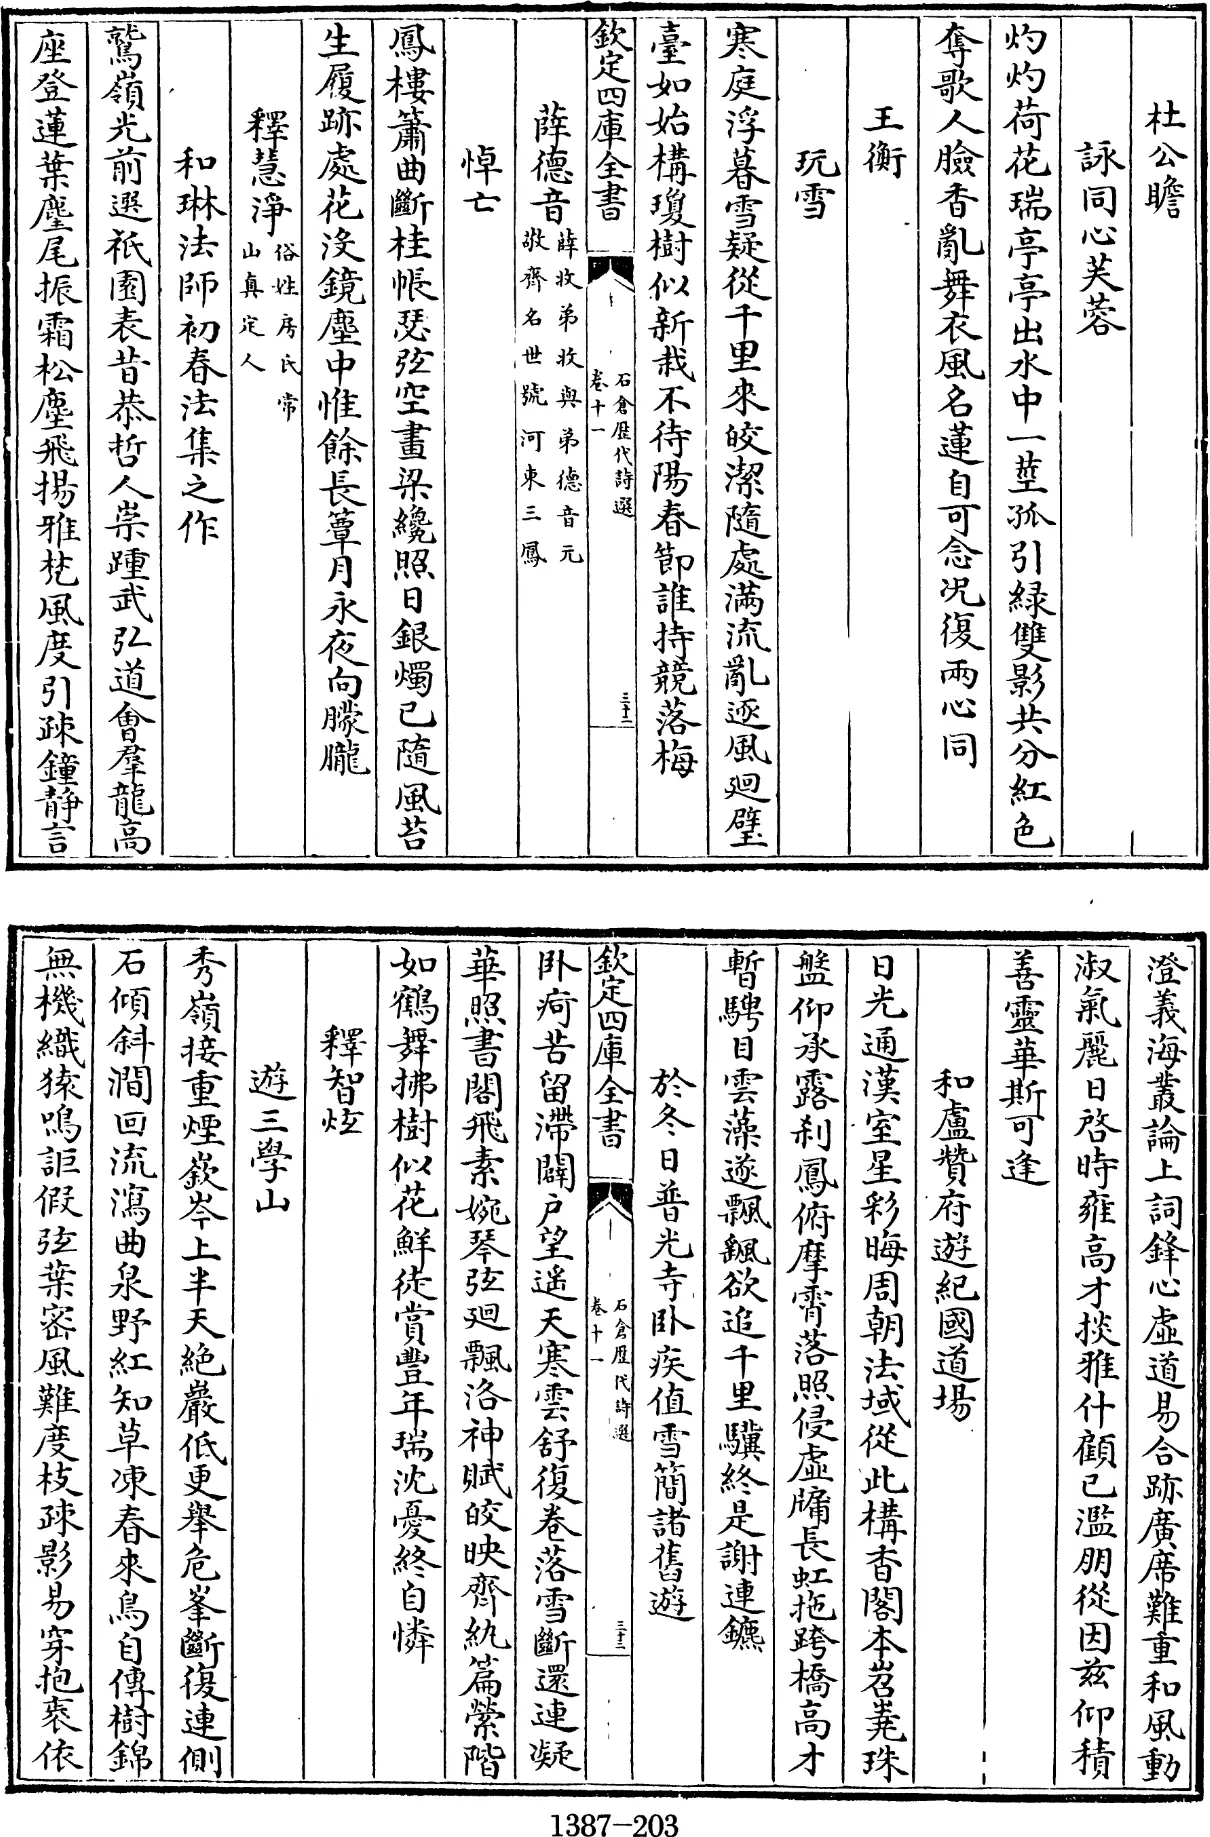 杜公瞻
詠同心芙蓉
灼灼荷花瑞亭亭出水中一莖孤引緑雙影共分紅色
奪歌人臉香亂舞衣風名蓮自可念况復兩心同
王衡
玩雪
寒庭浮暮雪疑從千里來皎潔隨處滿流亂逐風廻璧
臺如始構瓊樹似新栽不待陽春節誰持競落梅
欽定四庫全書
石倉歴代詩選
卷十一
三十二
薛德音薛收弟收與弟德音元
敬齊名世號河東三鳳
悼亡
鳳樓簫曲斷桂帳瑟弦空畫梁纔照日銀燭已隨風苔
生履跡處花沒鏡塵中惟餘長簟月永夜向朦朧
釋慧淨俗姓房氏常
山真定人
和琳法師初春法集之作
鷲嶺光前選祇園表昔恭哲人崇踵武弘道會羣龍高
座登蓮葉麈尾振霜松塵飛揚雅梵風度引疎鐘静言
澄義海叢論上詞鋒心虚道易合跡廣席難重和風動
淑氣麗日啓時雍高才掞雅什顧已濫朋從因兹仰積
善靈華斯可逢
和盧贊府遊紀國道場
日光通漢室星彩晦周朝法域從此構香閣本岧嶤珠
盤仰承露刹鳳俯摩霄落照侵虚牖長虹拖跨橋高才
暫騁目雲藻遂飄飖欲追千里驥終是謝連鑣
於冬日普光寺卧疾值雪簡諸舊遊
欽定四庫全書
石倉歴代詩選
卷十一
三十三
卧疴苦留滯闢户望遥天寒雲舒復卷落雪斷還連凝
華照書閣飛素婉琴弦廻飄洛神賦皎映齊紈篇縈階
如鶴舞拂樹似花鮮徒賞豐年瑞沈憂終自憐
釋智炫
遊三學山
秀嶺接重煙嶔岑上半天絶巖低更舉危峯斷復連側
石傾斜澗回流瀉曲泉野紅知草凍春來鳥自傳樹錦
無機織猿鳴詎假弦葉密風難度枝疎影易穿抱袠依
1387—203